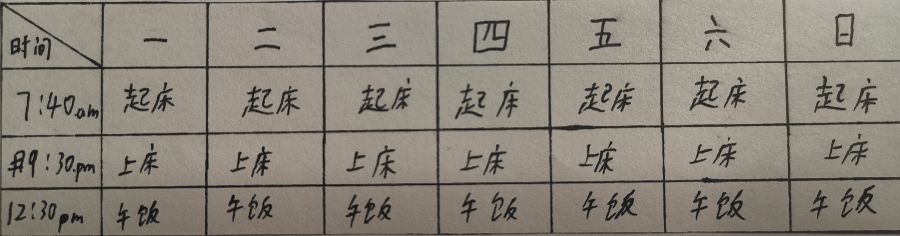 时间 一 二 三 四 五 六 日
7:40am 起床 起床 起床 起床 起床 起床 起床
9:30.pm 上床 上床 上床 上床 上床 上床 上床
12:30pm 午饭 午饭 午饭 午饭 午饭 午饭 午饭